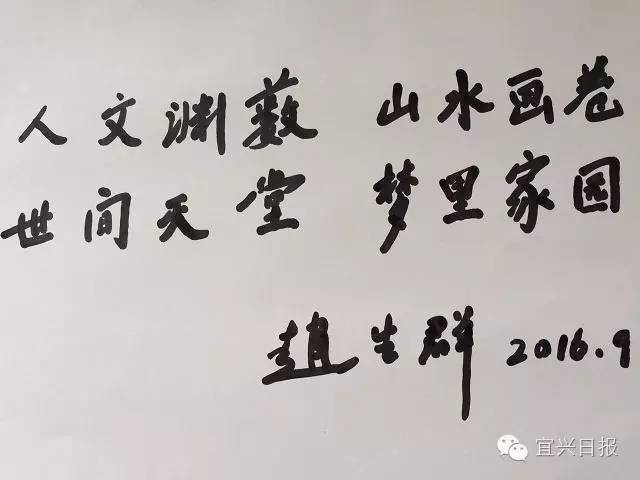 人文渊薮 山水画卷
世间天堂 梦里家园
趙生群 2016.9
宜兴日报